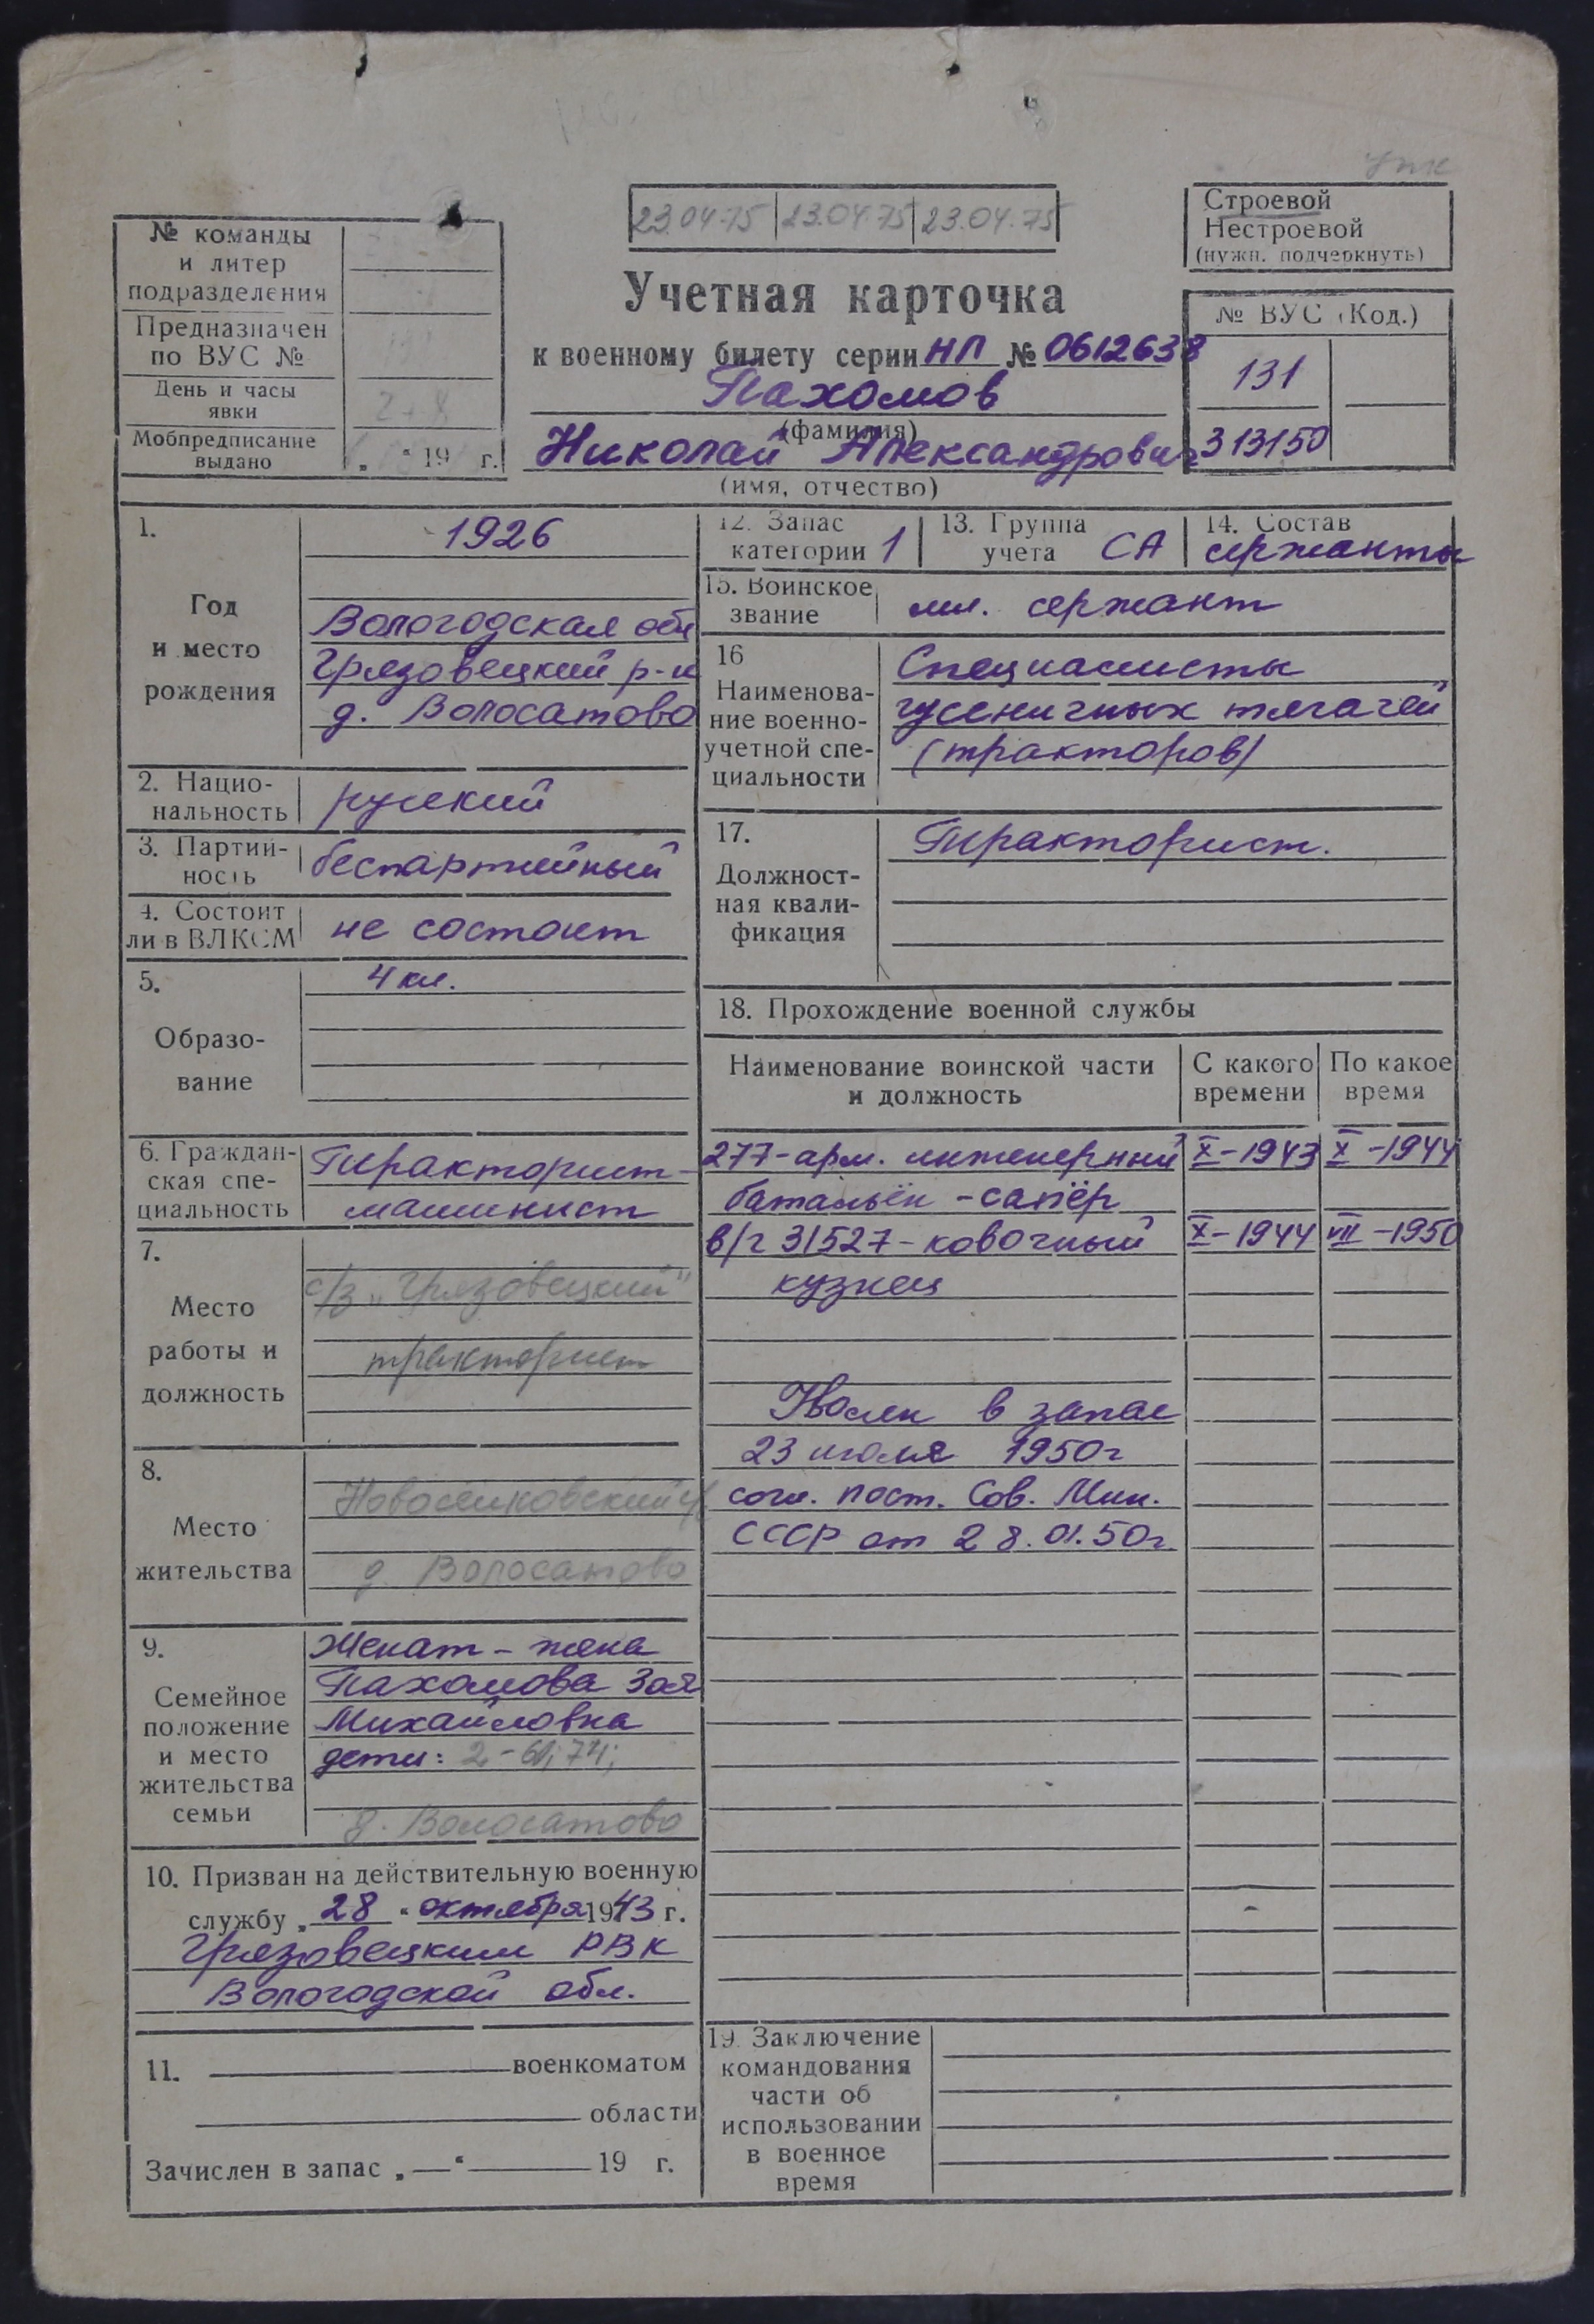 23.04.75 23.04.75 23.04.75
Строевой
Нестроевой
(нужн. подчеркнуть)
№ команды
и литер
подразделения
Предназначен
по ВУС №
День и часы
явки
Мобпредписание
выдано „ “ 19 г.
Учетная карточка
к военному билету серии НП № 0612638
Пахомов
(фамилия)
Николай Александрович
(имя, отчество)
№ ВУС (Код.)
131
313150
1.
Год
и место
рождения
1926
Вологодская обл
Грязовецкий р-н
д. Волосатово
2. Нацио-
нальность
русский
3. Партий-
ность
беспартийный
4. Состоит
ли в ВЛКСМ
не состоит
5.
Образо-
вание
4 кл.
6. Граждан-
ская спе-
циальность
Тракторист-
машинист
7.
Место
работы и
должность
с/з „Грязовецкий"
тракторист
8.
Место
жительства
д. Волосатово
9.
Семейное
положение
и место
жительства
семьи
Женат - жена
Пахомова Зоя
Михайловна
дети:
д. Волосатово
10. Призван на действительную военную
службу „28“ октября 1943 г.
Грязовецким РВК
Вологодской обл.
11. военкоматом
области
Зачислен в запас „ — “ 19 г.
12. Запас
категории 1
13. Группа
учета СА
14. Состав
сержанты
15. Воинское
звание
мл. сержант
16
Наименова-
ние военно-
учетной спе-
циальности
Специалисты
гусеничных тягачей
(тракторов)
17.
Должност-
ная квали-
фикация
Тракторист.
18. Прохождение военной службы
Наименование воинской части
и должность
С какого
времени
По какое
время
277-арм. инженерный X-1943 X-1944
батальён - сапёр
в/ч 31527 - ковочный X-1944 VII-1950
кузнец
Уволен в запас
23 июля 1950г
согл. пост. Сов. Мин.
СССР от 28.01.50г
19. Заключение
командования
части об
использовании
в военное
время